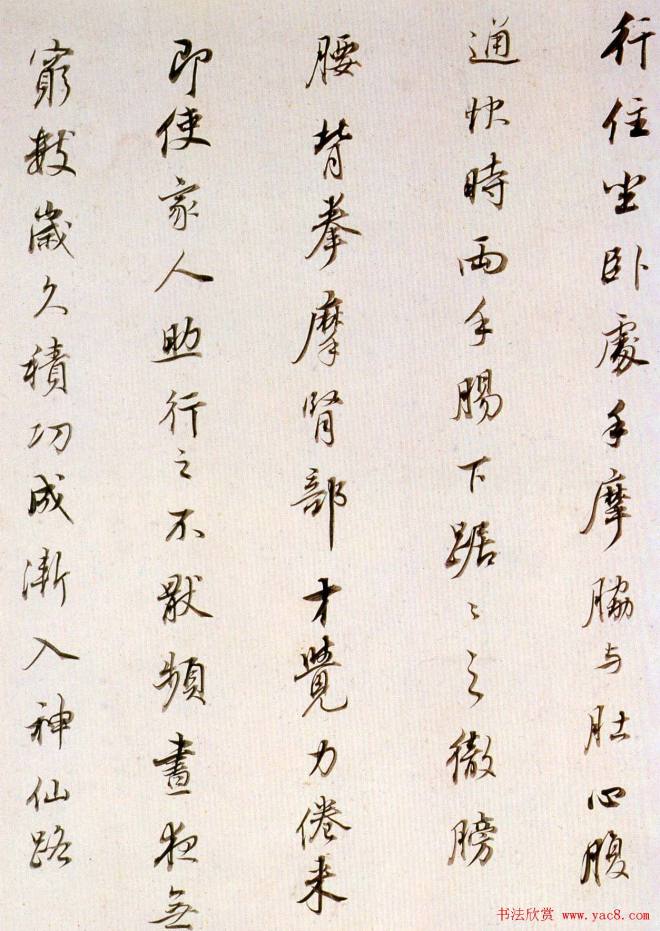 行住坐卧處手摩脇與肚心腹
通快時兩手腸下踞踞之徹膀
腰背拳摩腎部才覺力倦来
即使家人助行之不厭頻晝夜無
窮數歲久積功成漸入神仙路
书法欣赏 www.yac8.com